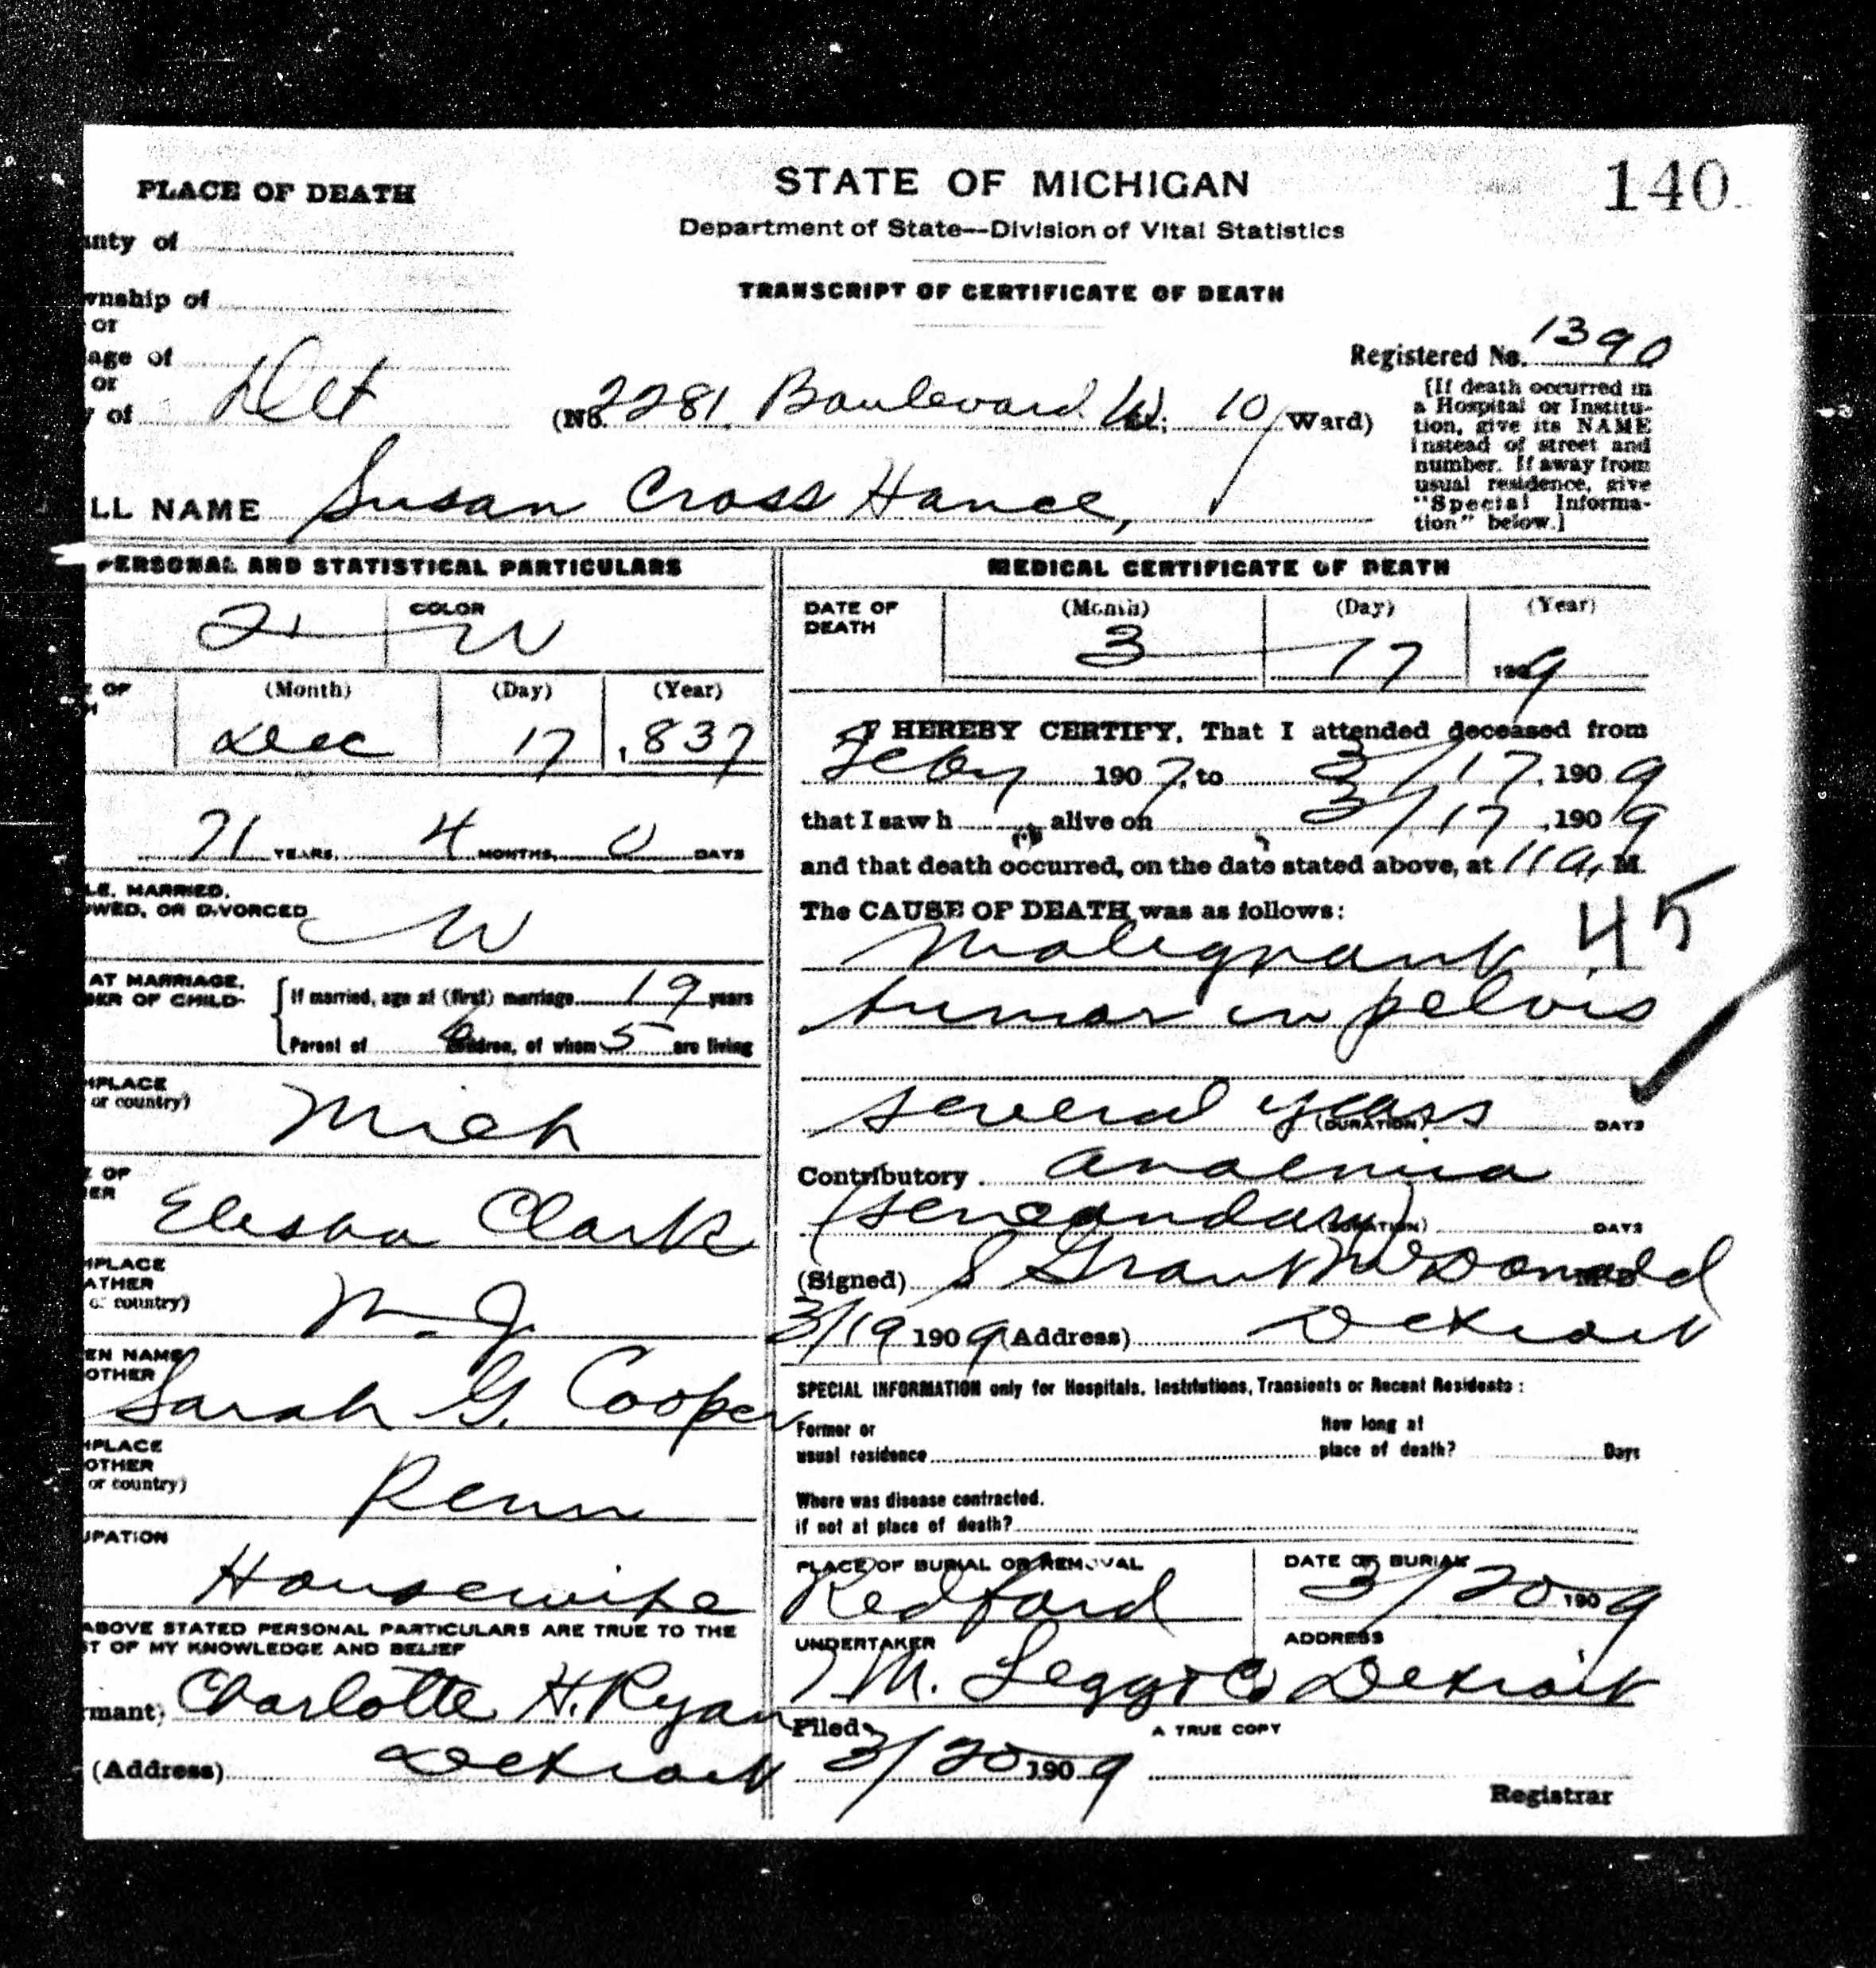 140
PLACE OF DEATH
STATE OF MICHIGAN
Department of State—Division of Vital Statistics
unty of
TRANSCRIPT OF CERTIFICATE OF DEATH
wnship of
or
age of
or
y of Det (No. 2281, Boulevard W. 10 Ward)
Registered No. 1390
[If death occurred in
a Hospital or Institu-
tion, give its NAME
instead of street and
number. If away from
usual residence, give
"Special Informa-
tion" below.]
LL NAME Susan Cross Hance,
PERSONAL AND STATISTICAL PARTICULARS
COLOR
W
E OF
H
(Month) (Day) (Year)
Dec 17 ,837
71 YEARS, 4 MONTHS, 0 DAYS
LE, MARRIED,
OWED, OR DIVORCED
W
AT MARRIAGE,
BER OF CHILD-
If married, age at (first) marriage 19 years
Parent of 6 children, of whom 5 are living
HPLACE
or country)
Mich
E OF
ER
Elesha Clark
HPLACE
ATHER
or country)
N. J.
EN NAME
OTHER
Sarah G. Cooper
HPLACE
OTHER
or country)
Penn
UPATION
Housewife
ABOVE STATED PERSONAL PARTICULARS ARE TRUE TO THE
ST OF MY KNOWLEDGE AND BELIEF
rmant) Charlotte H. Ryan
(Address) Detroit
MEDICAL CERTIFICATE OF DEATH
DATE OF
DEATH
(Month) (Day) (Year)
3 17 1909
I HEREBY CERTIFY, That I attended deceased from
Feby 1907, to 3/17, 1909
that I saw h er alive on 3/17, 1909
and that death occurred, on the date stated above, at 11 a. M.
The CAUSE OF DEATH was as follows:
Malignant 45
tumor in pelvis
several years (DURATION) DAYS
Contributory anaemia
(seneondary) (DURATION) DAYS
(Signed) S Grant McDonald
3/19 1909 (Address) Detroit
SPECIAL INFORMATION only for Hospitals, Institutions, Transients or Recent Residents:
Former or
usual residence
How long at
place of death? Days
Where was disease contracted,
if not at place of death?
PLACE OF BURIAL OR REMOVAL
Redford
DATE OF BURIAL
3/20 1909
UNDERTAKER
M. Legg & Co
ADDRESS
Detroit
Filed 3/20 1909
A TRUE COPY
Registrar